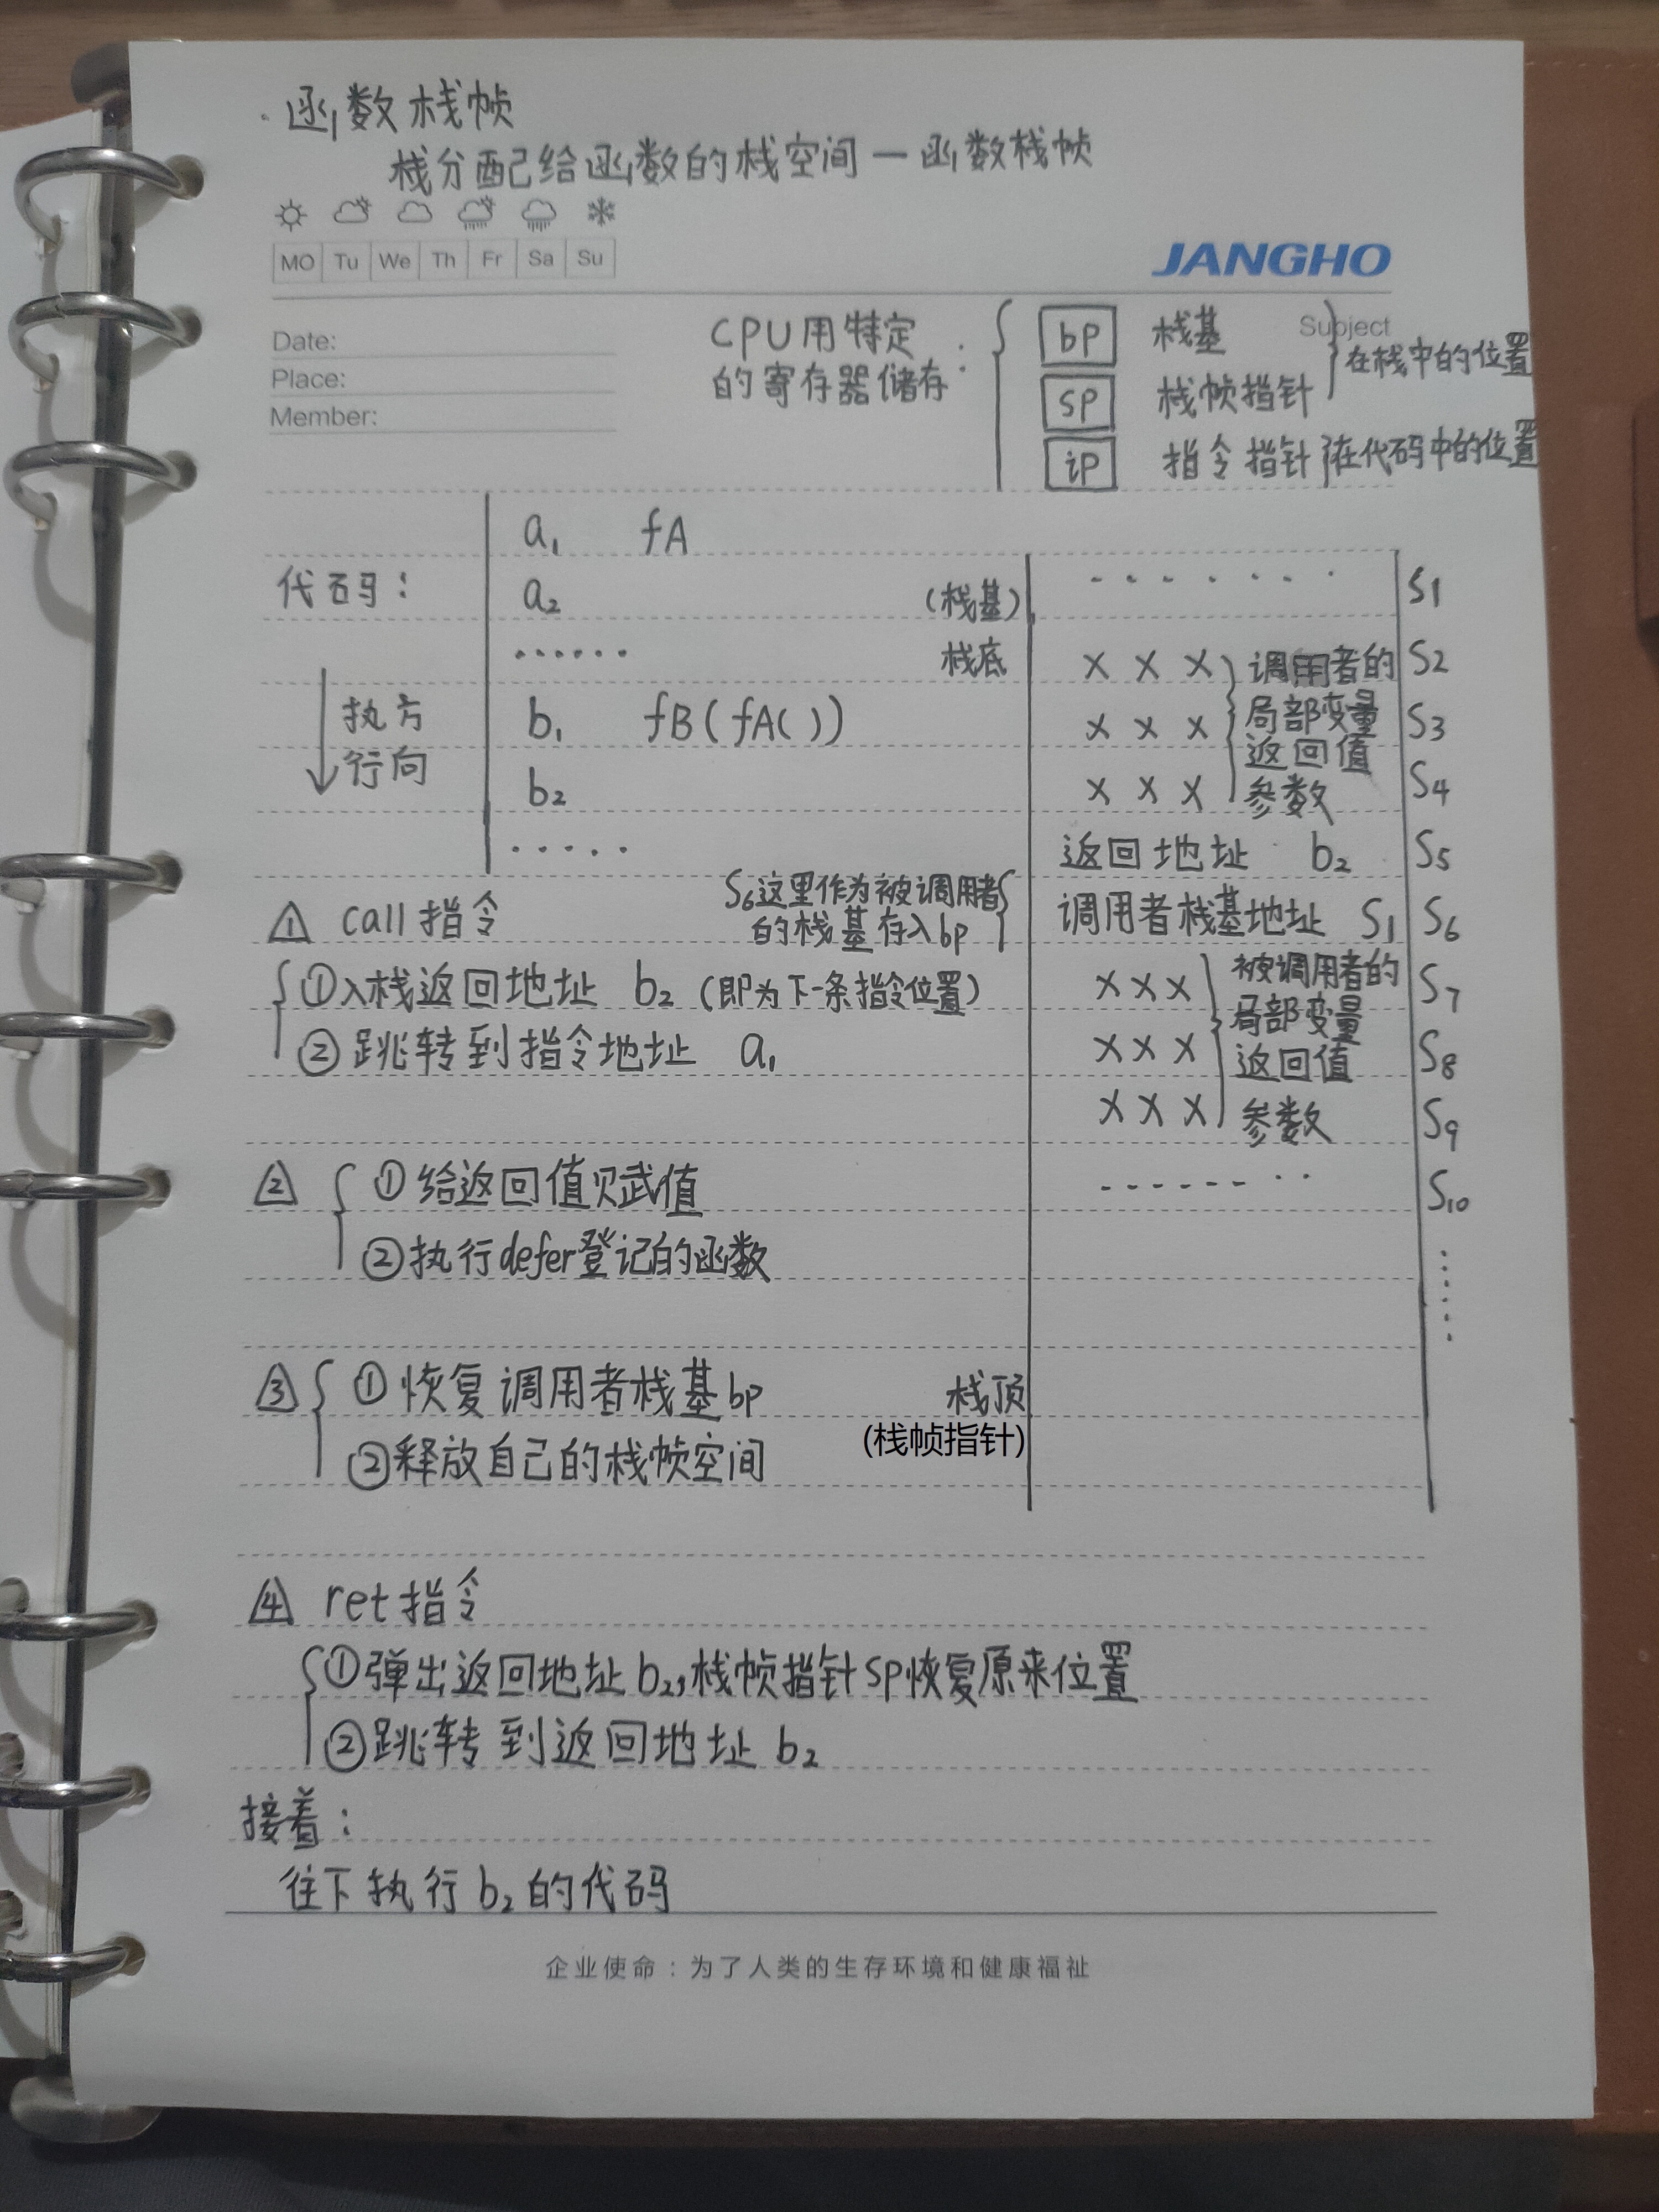 · 函数栈帧
栈分配给函数的栈空间 — 函数栈帧
MO Tu We Th Fr Sa Su
JANGHO
Date:
Place:
Member:
Subject
CPU用特定
的寄存器储存:
bp 栈基
sp 栈帧指针
在栈中的位置
ip 指令指针 在代码中的位置
代码:
执行方向
a₁ fA
a₂
......
b₁ fB(fA( ))
b₂
.....
(栈基)
栈底
....... S1
××× S2
××× S3
××× S4
调用者的
局部变量
返回值
参数
返回地址 b₂ S5
调用者栈基地址 S1 S6
S6这里作为被调用者
的栈基存入bp
××× S7
××× S8
××× S9
被调用者的
局部变量
返回值
参数
-------·· S10
......
栈顶
(栈帧指针)
△1 call指令
①入栈返回地址 b₂ (即为下一条指令位置)
②跳转到指令地址 a₁
△2 ①给返回值赋值
②执行defer登记的函数
△3 ①恢复调用者栈基bp
②释放自己的栈帧空间
△4 ret指令
①弹出返回地址b₂,栈帧指针sp恢复原来位置
②跳转到返回地址 b₂
接着:
往下执行b₂的代码
企业使命:为了人类的生存环境和健康福祉